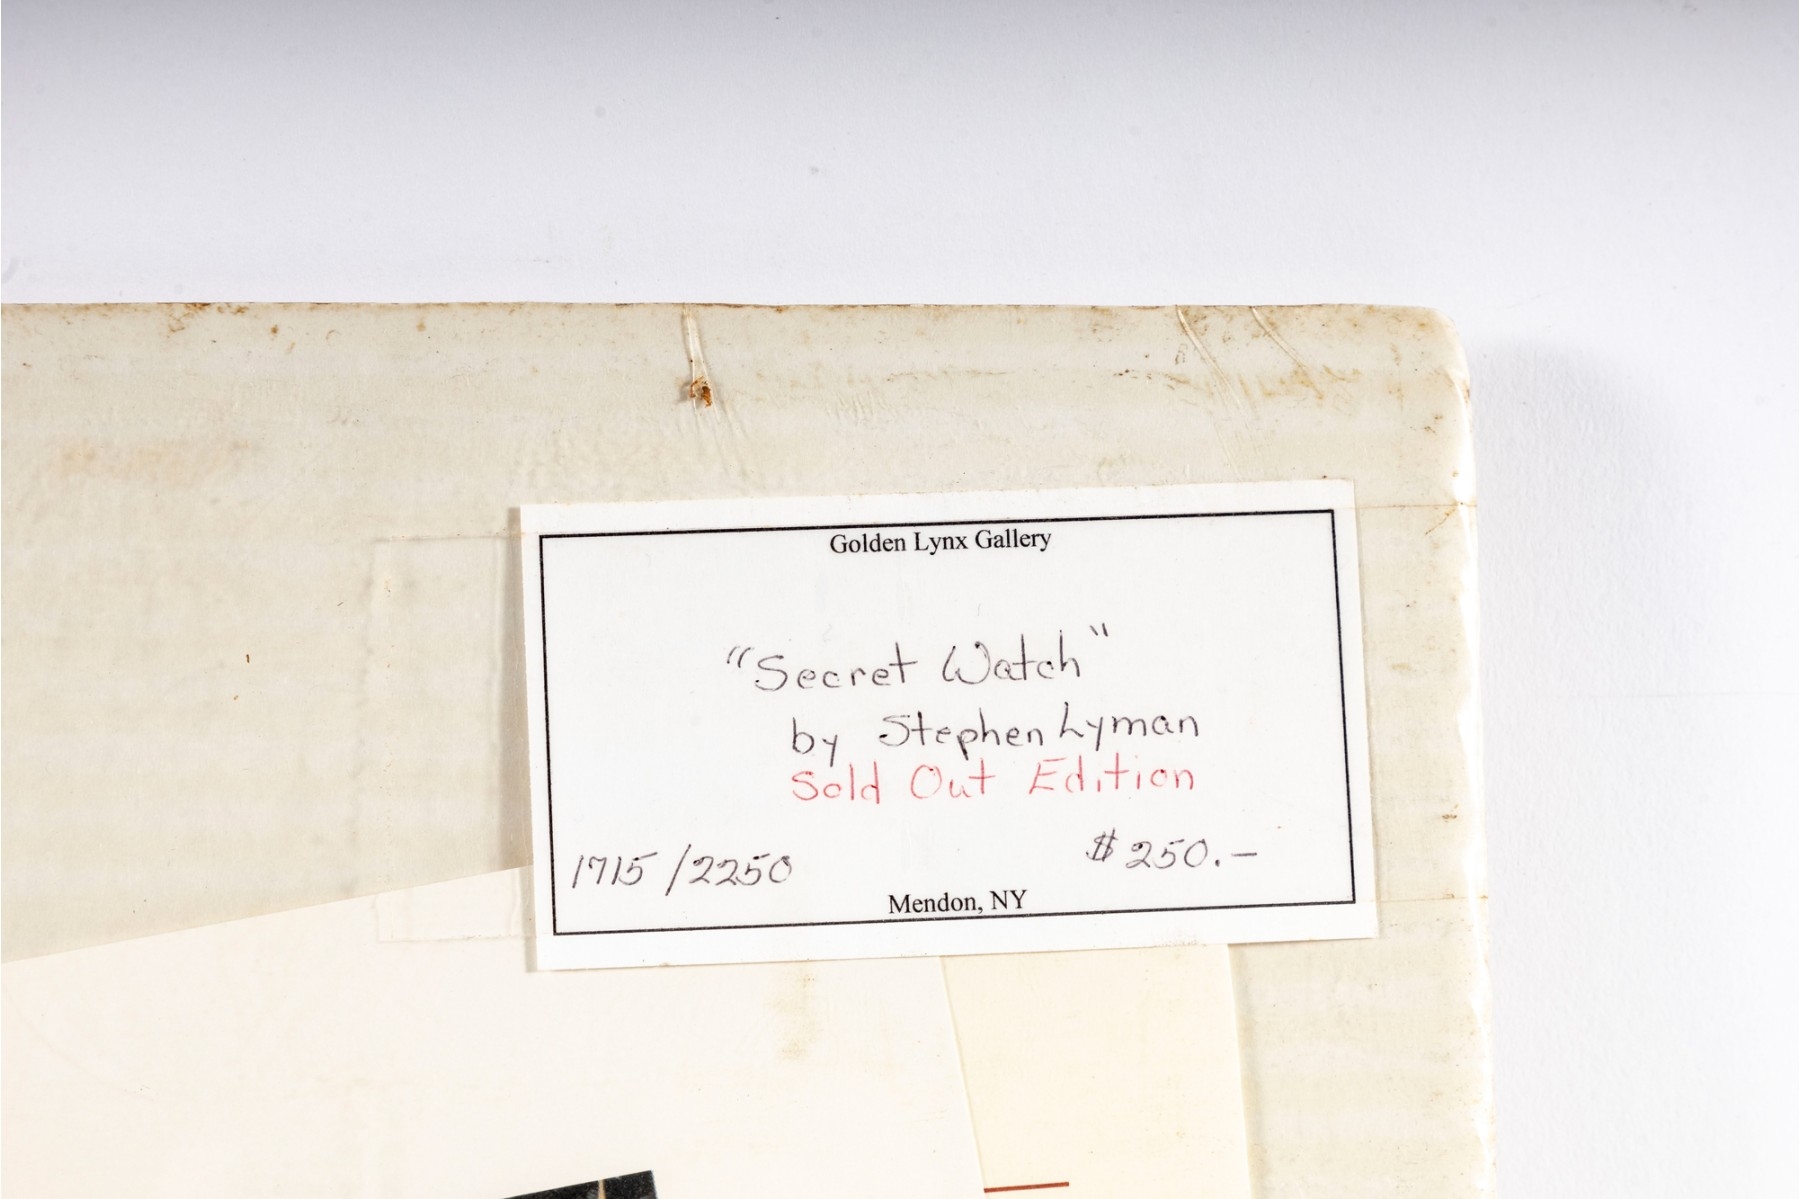 Golden Lynx Gallery
"Secret Watch"
by Stephen Lyman
Sold Out Edition
1715/2250
$250.–
Mendon, NY